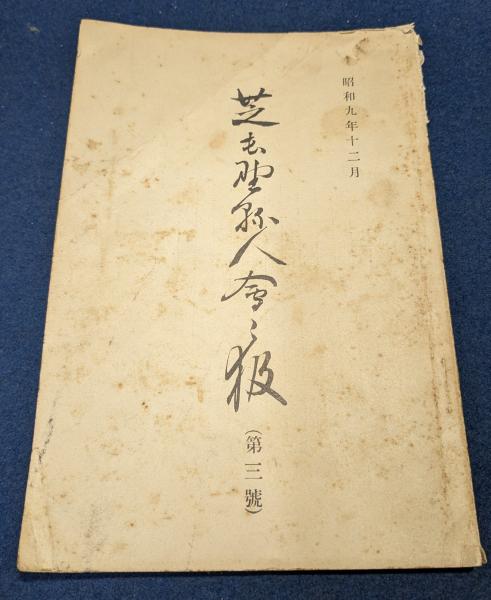 昭和九年十二月
芝長野縣人會々報
(第三號)